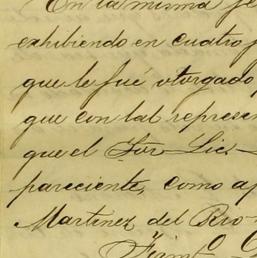 En la misma fe
exhibiendo en cuatro f
que le fué otorgado
que con tal represen
que el Sor Lic
pareciente, como ap
Martinez del Rio